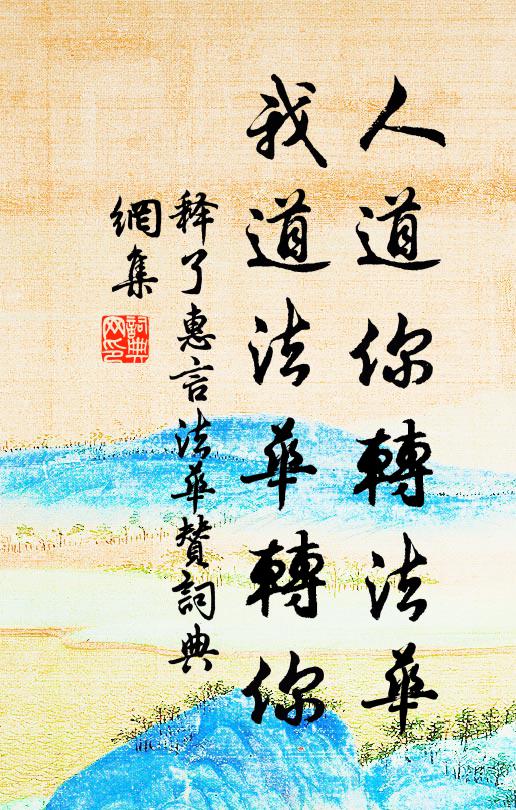 人道你轉法華
我道法華轉你
释了惠言法华賛詞典
網集
詞典
网印